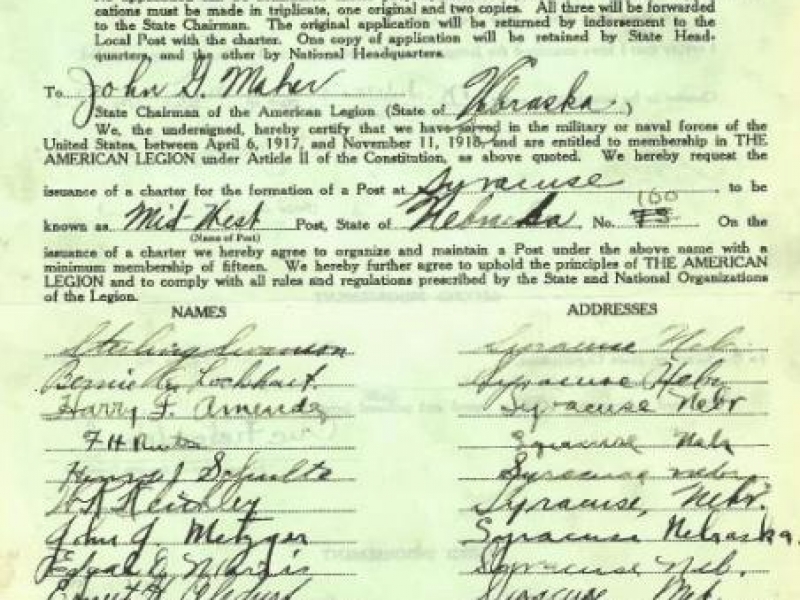 cations must be made in triplicate, one original and two copies. All three will be forwarded
to the State Chairman. The original application will be returned by indorsement to the
Local Post with the charter. One copy of application will be retained by State Head-
quarters, and the other by National Headquarters.
To John G. Maher
State Chairman of the American Legion (State of Nebraska)
We, the undersigned, hereby certify that we have served in the military or naval forces of the
United States, between April 6, 1917, and November 11, 1918, and are entitled to membership in THE
AMERICAN LEGION under Article II of the Constitution, as above quoted. We hereby request the
issuance of a charter for the formation of a Post at Syracuse to be
known as Mid-West Post, State of Nebraska No. 100 75 On the
(Name of Post)
issuance of a charter we hereby agree to organize and maintain a Post under the above name with a
minimum membership of fifteen. We hereby further agree to uphold the principles of THE AMERICAN
LEGION and to comply with all rules and regulations prescribed by the State and National Organizations
of the Legion.
NAMES ADDRESSES
Sterling Swanson Syracuse Neb.
Bernie Lockhart. Syracuse Nebr.
Harry F. Amende Syracuse Nebr
F H Syracuse Neb
Henry J Schulte Syracuse Nebr.
Syracuse, Nebr.
John J. Metzger Syracuse Nebraska.
Edgar Morris Syracuse Neb.
Ernest Syracuse Neb.